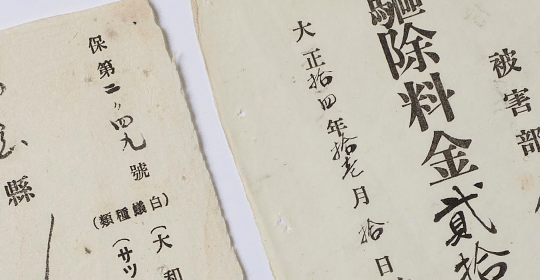 被害部
驅除料金貳拾
大正拾四年拾壱月拾日
保第二、四九號
白蟻種類
（大和
（サツ
縣